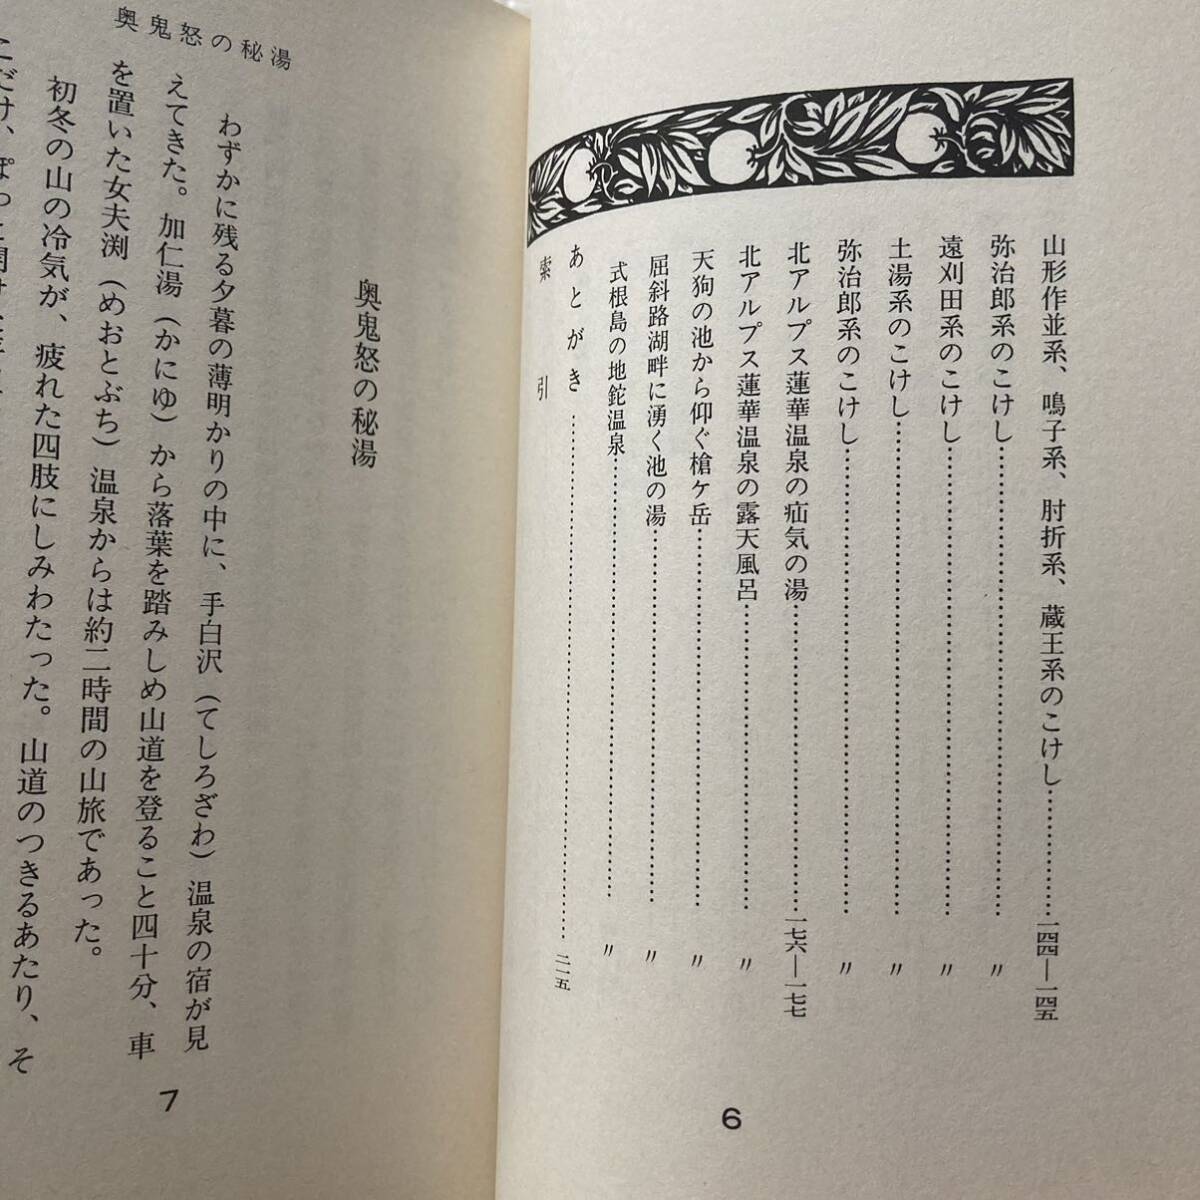 山形作並系、鳴子系、肘折系、蔵王系のこけし…………一四四—一四五
弥治郎系のこけし…………〃
遠刈田系のこけし…………〃
土湯系のこけし…………〃
弥治郎系のこけし…………〃
北アルプス蓮華温泉の疝気の湯…………一七六—一七七
北アルプス蓮華温泉の露天風呂…………〃
天狗の池から仰ぐ槍ケ岳…………〃
屈斜路湖畔に湧く池の湯…………〃
式根島の地鉈温泉…………〃
あとがき…………二一五
索引
6
奥鬼怒の秘湯
奥鬼怒の秘湯
わずかに残る夕暮の薄明かりの中に、手白沢(てしろざわ)温泉の宿が見
えてきた。加仁湯(かにゆ)から落葉を踏みしめ山道を登ること四十分、車
を置いた女夫渕(めおとぶち)温泉からは約二時間の山旅であった。
初冬の山の冷気が、疲れた四肢にしみわたった。山道のつきるあたり、そ
こだけ、ぽっと
7